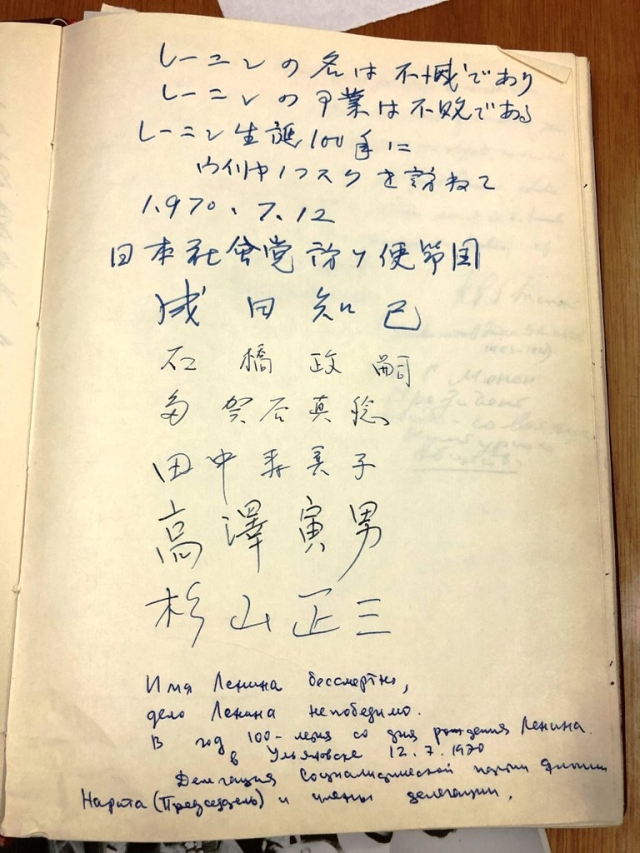 レーニンの名は不滅であり
レーニンの事業は不敗である
レーニン生誕100年に
ウリヤノフスクを訪ねて
1.970.7.12
日本社會党訪ソ使節団
成田知己
石橋政嗣
多賀谷真稔
田中寿美子
高澤寅男
杉山正三
Имя Ленина бессмертно,
дело Ленина непобедимо.
В год 100-летия со дня рождения Ленина.
в Ульяновске 12.7.1970
Делегация Социалистической партии Японии
Нарита (Председатель) и члены делегации.